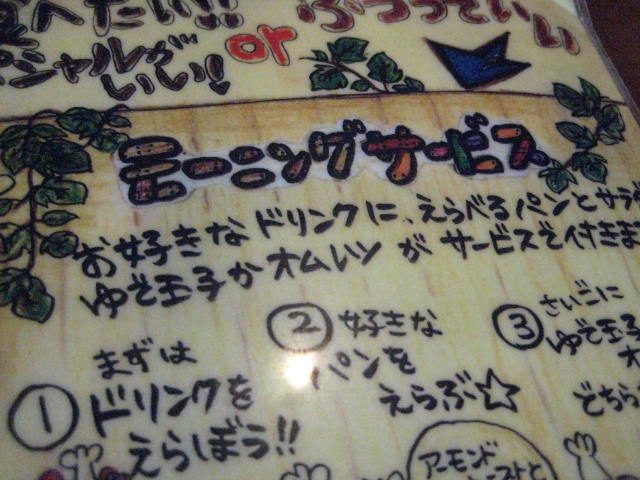 食べたい!! or ふつうでいい
シャルが いい!
モーニングサービス
お好きなドリンクに、えらべるパンとサラダ
ゆで玉子かオムレツがサービスで付きま
① まずは
ドリンクを
えらぼう!!
② 好きな
パンを
えらぶ☆
③ さいごに
ゆで玉子
オ
どちら
アーモンド
ーストと